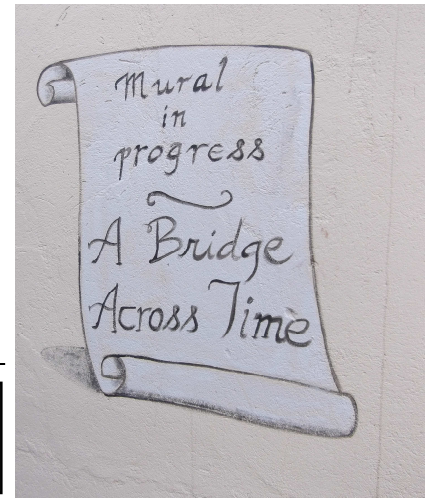 Mural
in
progress
A Bridge
Across Time